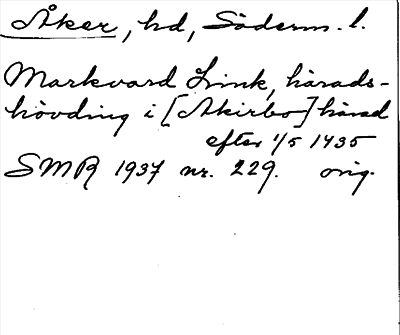 Åker, hd, Söderm. l.
Markvard Link, härads-
hövding i [Akirbo] härad
efter 1/5 1435
SMR 1937 nr. 229. orig.